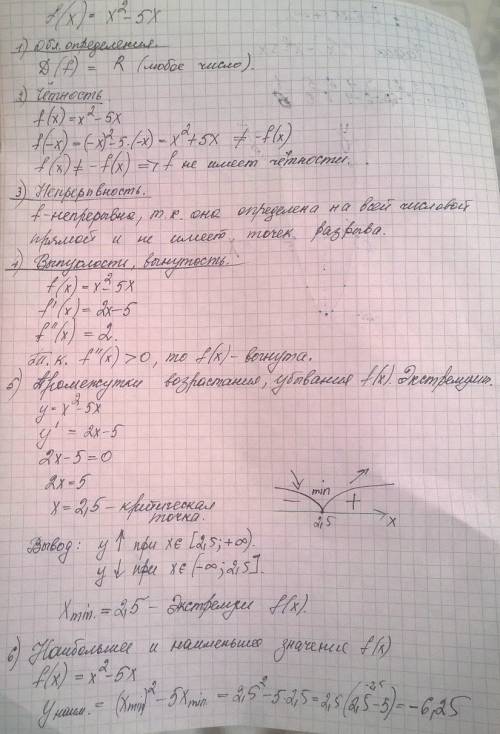 f(x) = x²-5x
1) Обл. определения.
D(f) = R (любое число).
2) Чётность
f(x) = x²-5x
f(-x) = (-x)²-5·(-x) = x²+5x ≠ -f(x)
f(x) ≠ -f(x) => f не имеет чётности.
3) Непрерывность.
f-непрерывна, т.к. она определена на всей числовой
прямой и не имеет точек разрыва.
4) Выпуклости, вогнутость.
f(x) = x²-5x
f'(x) = 2x-5
f''(x) = 2.
Т. к. f''(x) >0, то f(x)- вогнута.
5) Промежутки возрастания, убывания f(x). Экстремум.
y = x²-5x
y' = 2x-5
2x-5=0
2x=5
x = 2,5 - критическая
точка.
- min +
2,5 x
Вывод: y ↑ при x∈ [2,5; +∞).
y ↓ при x∈ (-∞; 2,5].
x min. = 2,5 - Экстремум f(x).
6) Наибольшее и наименьшее значения f(x)
f(x) = x²-5x
y наим. = (x min)² - 5x min. = 2,5²-5·2,5 = 2,5(2,5-5) = -6,25
-2,5